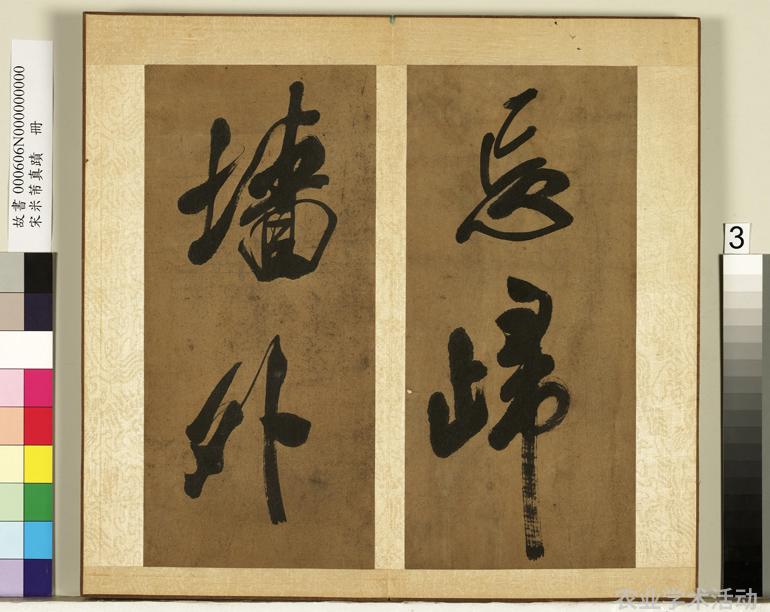 忘歸
墻外
故書 000606N000000000
宋米芾真蹟 冊
3
农业学术活动